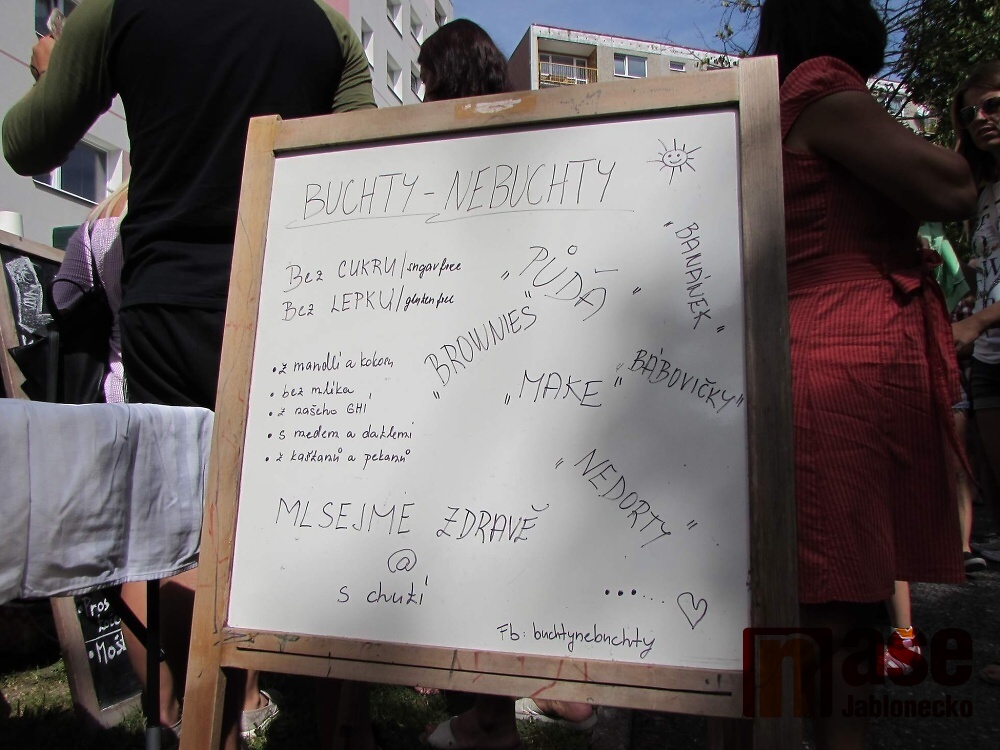 BUCHTY-NEBUCHTY
Bez CUKRU/sugar free
Bez LEPKU/gluten free
• z mandlí a kokosu
• bez mlíka
• z našeho GHÍ
• s medem a datlemi
• z kaštanů a pekanů
„PŮDA"
„BANÁNEK"
„BROWNIES"
„MAKE"
„BÁBOVIČKY"
„NEDORTY"
MLSEJME ZDRAVĚ
@
s chutí
......
Fb: buchtynebuchty
Pros
• Mošt
nase
Jablonecko